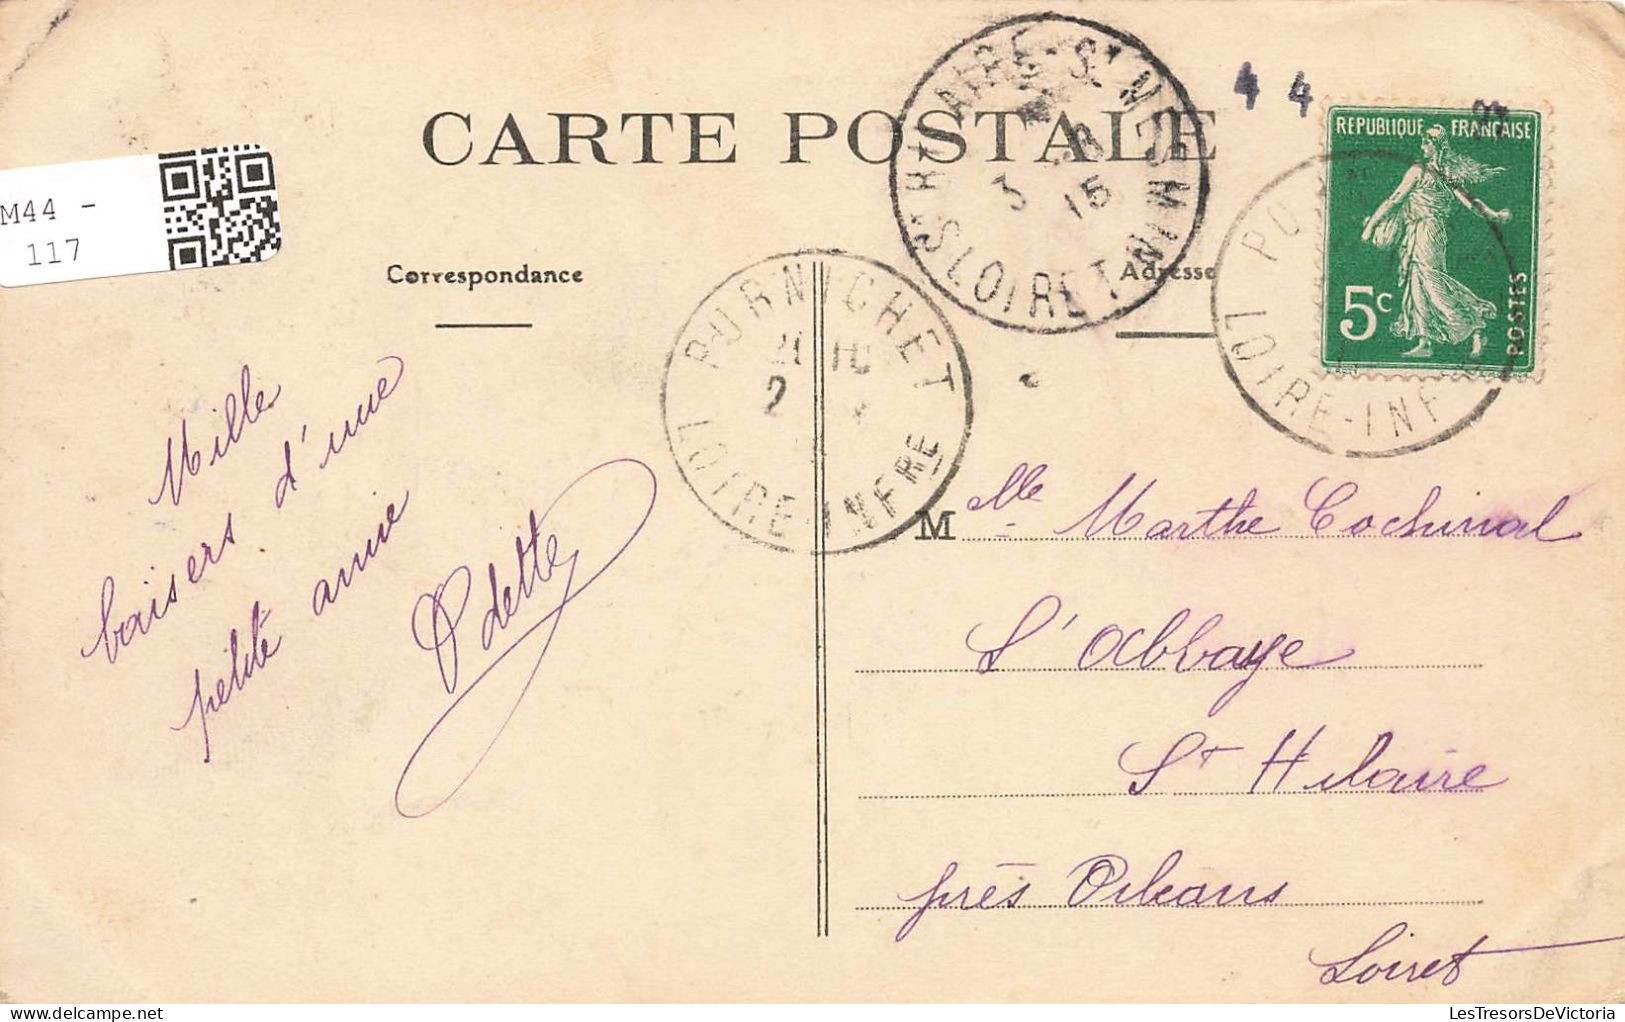 CARTE POSTALE
M44 -
117
4 4
REPUBLIQUE FRANÇAISE
5c
POSTES
ST HILAIRE-ST MESMIN
LOIRET
3 -8
15
Correspondance
Adresse
PORNICHET
2
LOIRE-INFRE
PO
LOIRE-INF
Mille
baisers d'une
petite amie
Odette
M elle Marthe Cochinal
L'Abbaye
St Hilaire
près Orléans
Loiret
LesTresorsDeVictoria